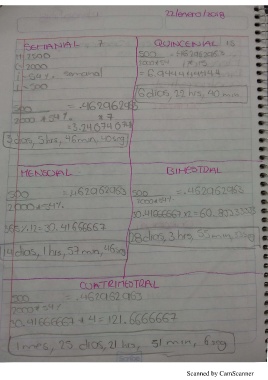 22/enero/2018
SEMANAL 7
I=500
500 = .462962963
2000 * 54% * 7
= 3.24074074
3 dias, 5 hrs, 46 min, 40 sg
QUINCENAL 15
500 = .462962963
= 6.944444444
6 dias, 22 hrs, 40 min
MENSUAL
500 = .462962963
2000 * 54%
365/12 = 30.41666667
14 dias, 1 hrs, 57 min, 46 sg
BIMESTRAL
500 = .462962963
2000*54%
30.41666667 x2 = 60.8333333
28 dias, 3 hrs, 55 min,
CUATRIMESTRAL
500 = .462962963
2000 * 54%
30.41666667 * 4 = 121.6666667
1 mes, 25 dias, 21 hrs, 51 min, 6 sg
Scanned by CamScanner